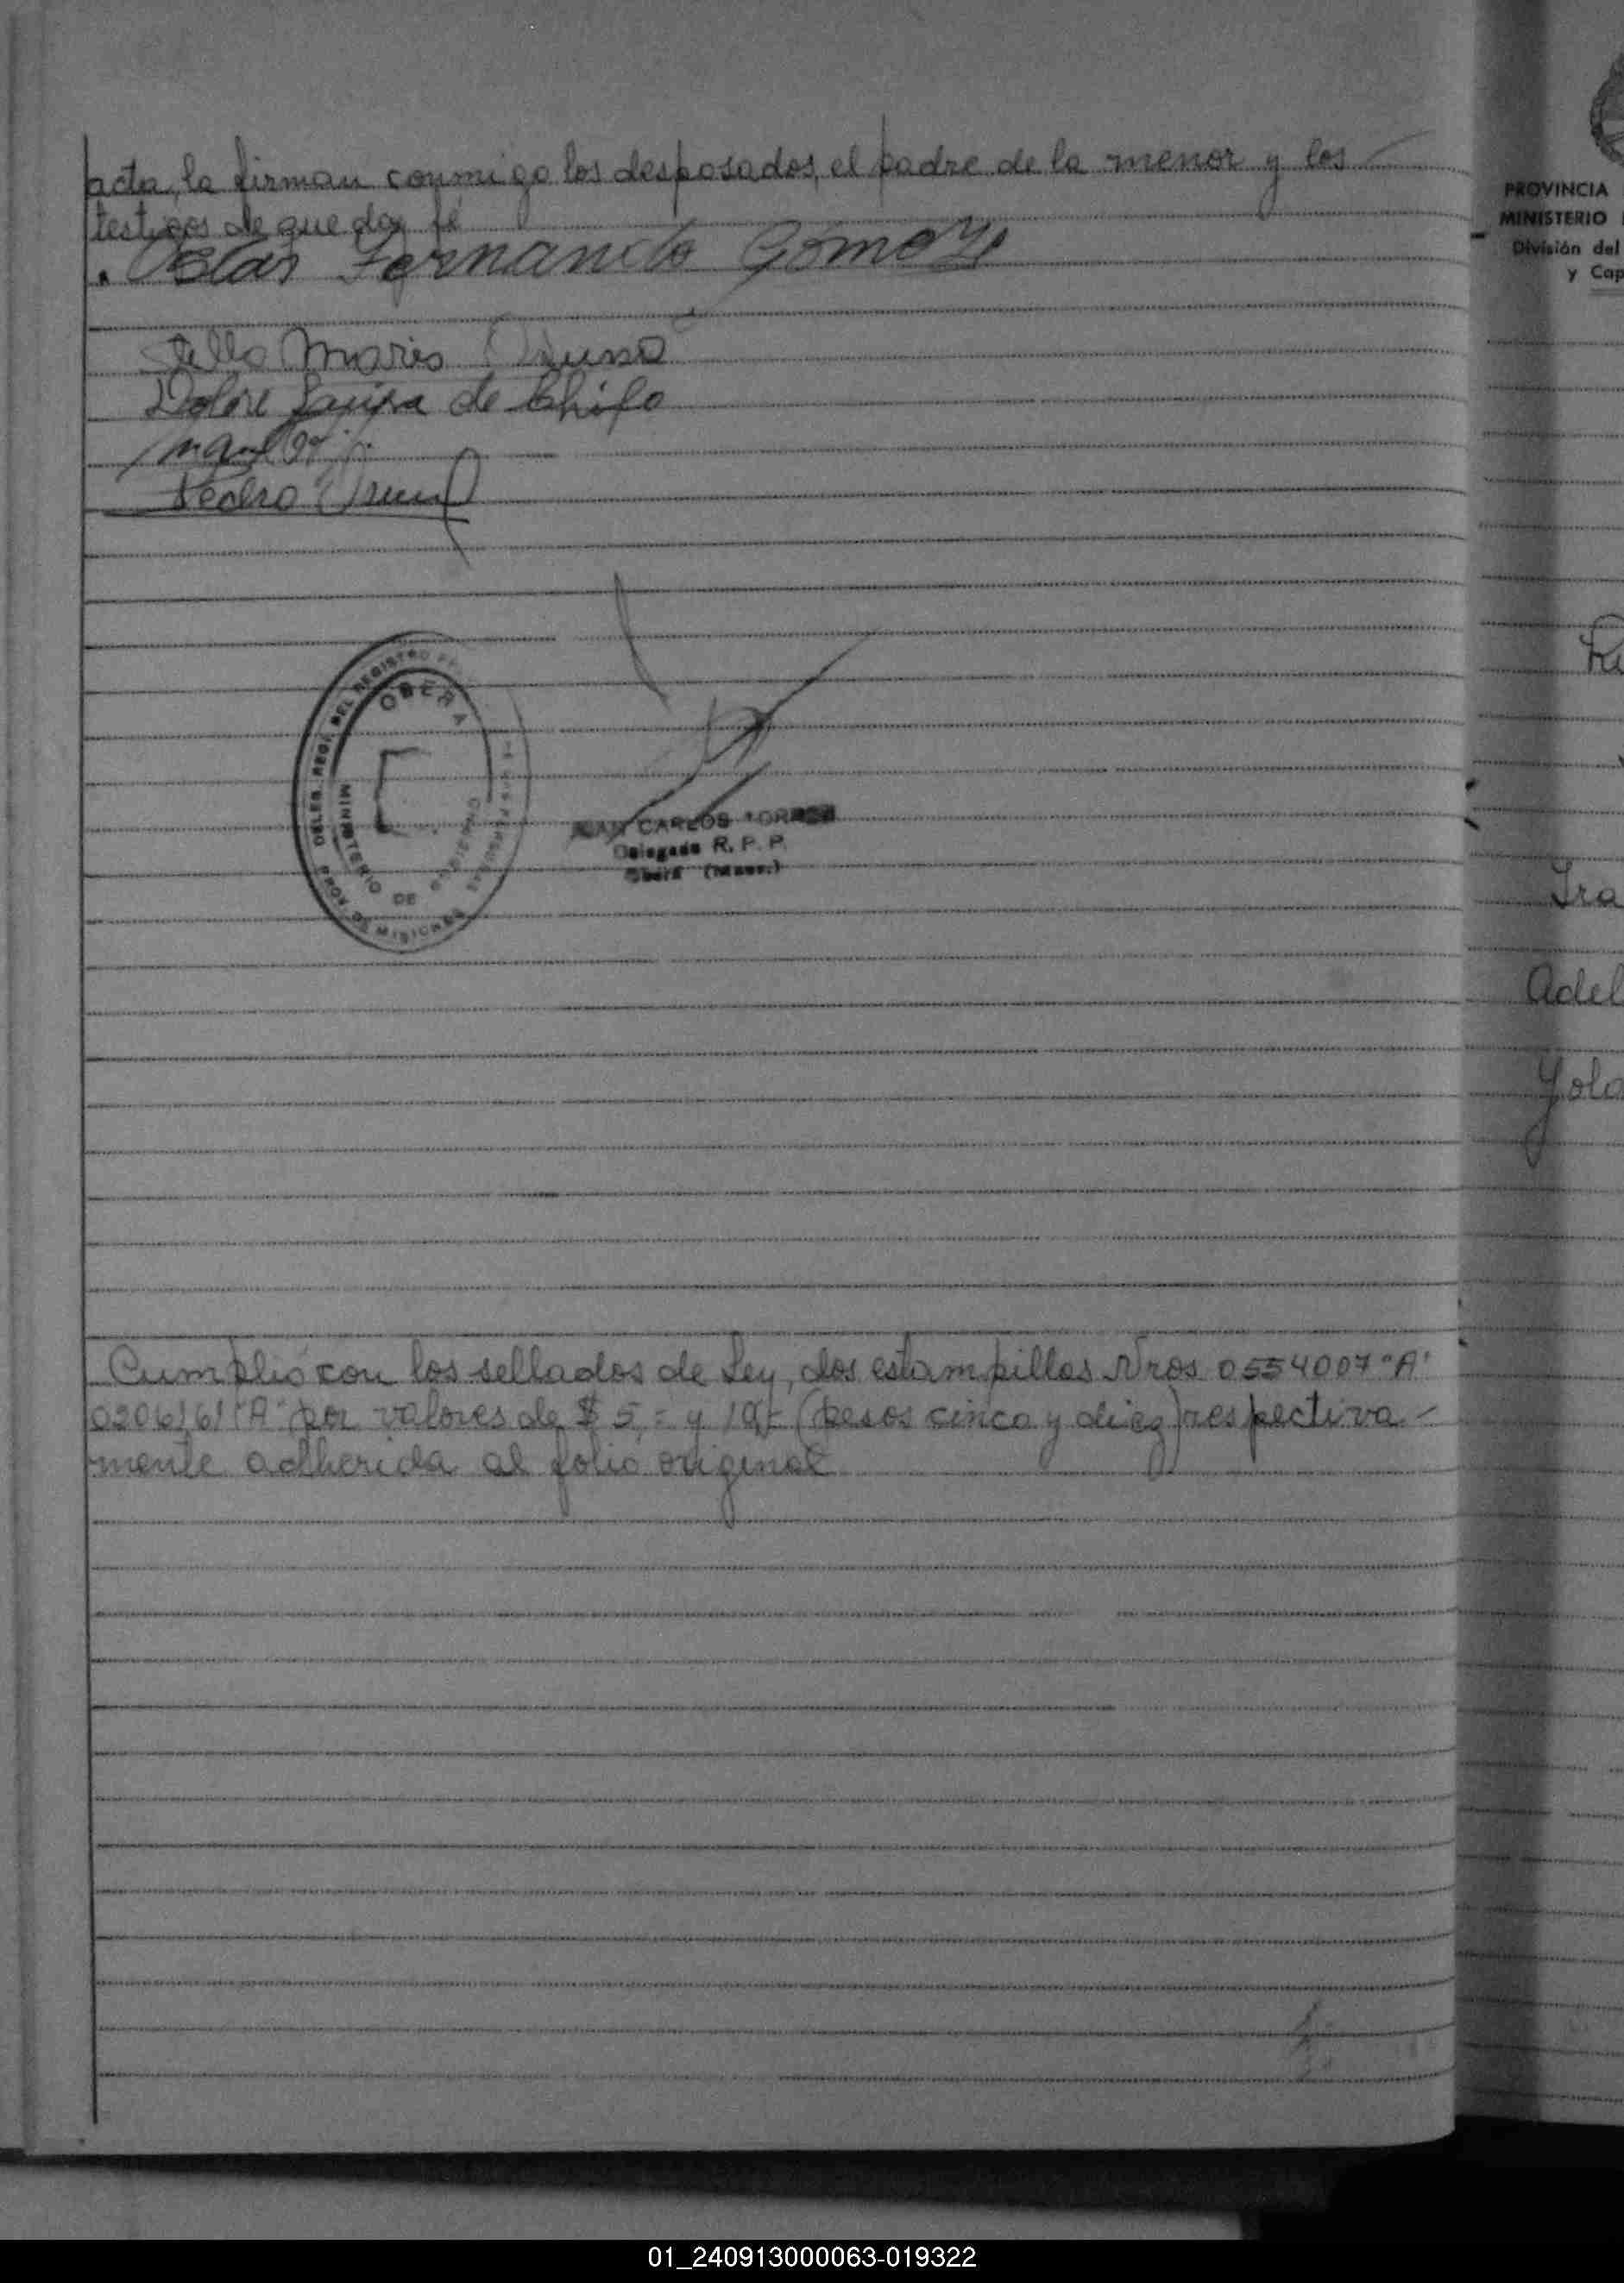 acta, la firman conmigo los desposados, el padre de la menor y los
testigos de que doy fé
Fernando Gomez
Stella Maris
Dolore de Chifo
Pedro
DELEG. REGL. DEL REGISTRO
OBERA
MINISTERIO DE GOBIERNO
PROV. DE MISIONES
JUAN CARLOS TORRES
Delegado R. P. P.
Oberá (Mnes.)
Cumplió con los sellados de Ley, dos estampillas Nros 0554007 "A"
0206161 "A" por valores de $ 5.= y 10.= (pesos cinco y diez) respectiva-
mente adherida al folio original
PROVINCIA
MINISTERIO
División del
y Cap
Adel
Yola
01_240913000063-019322